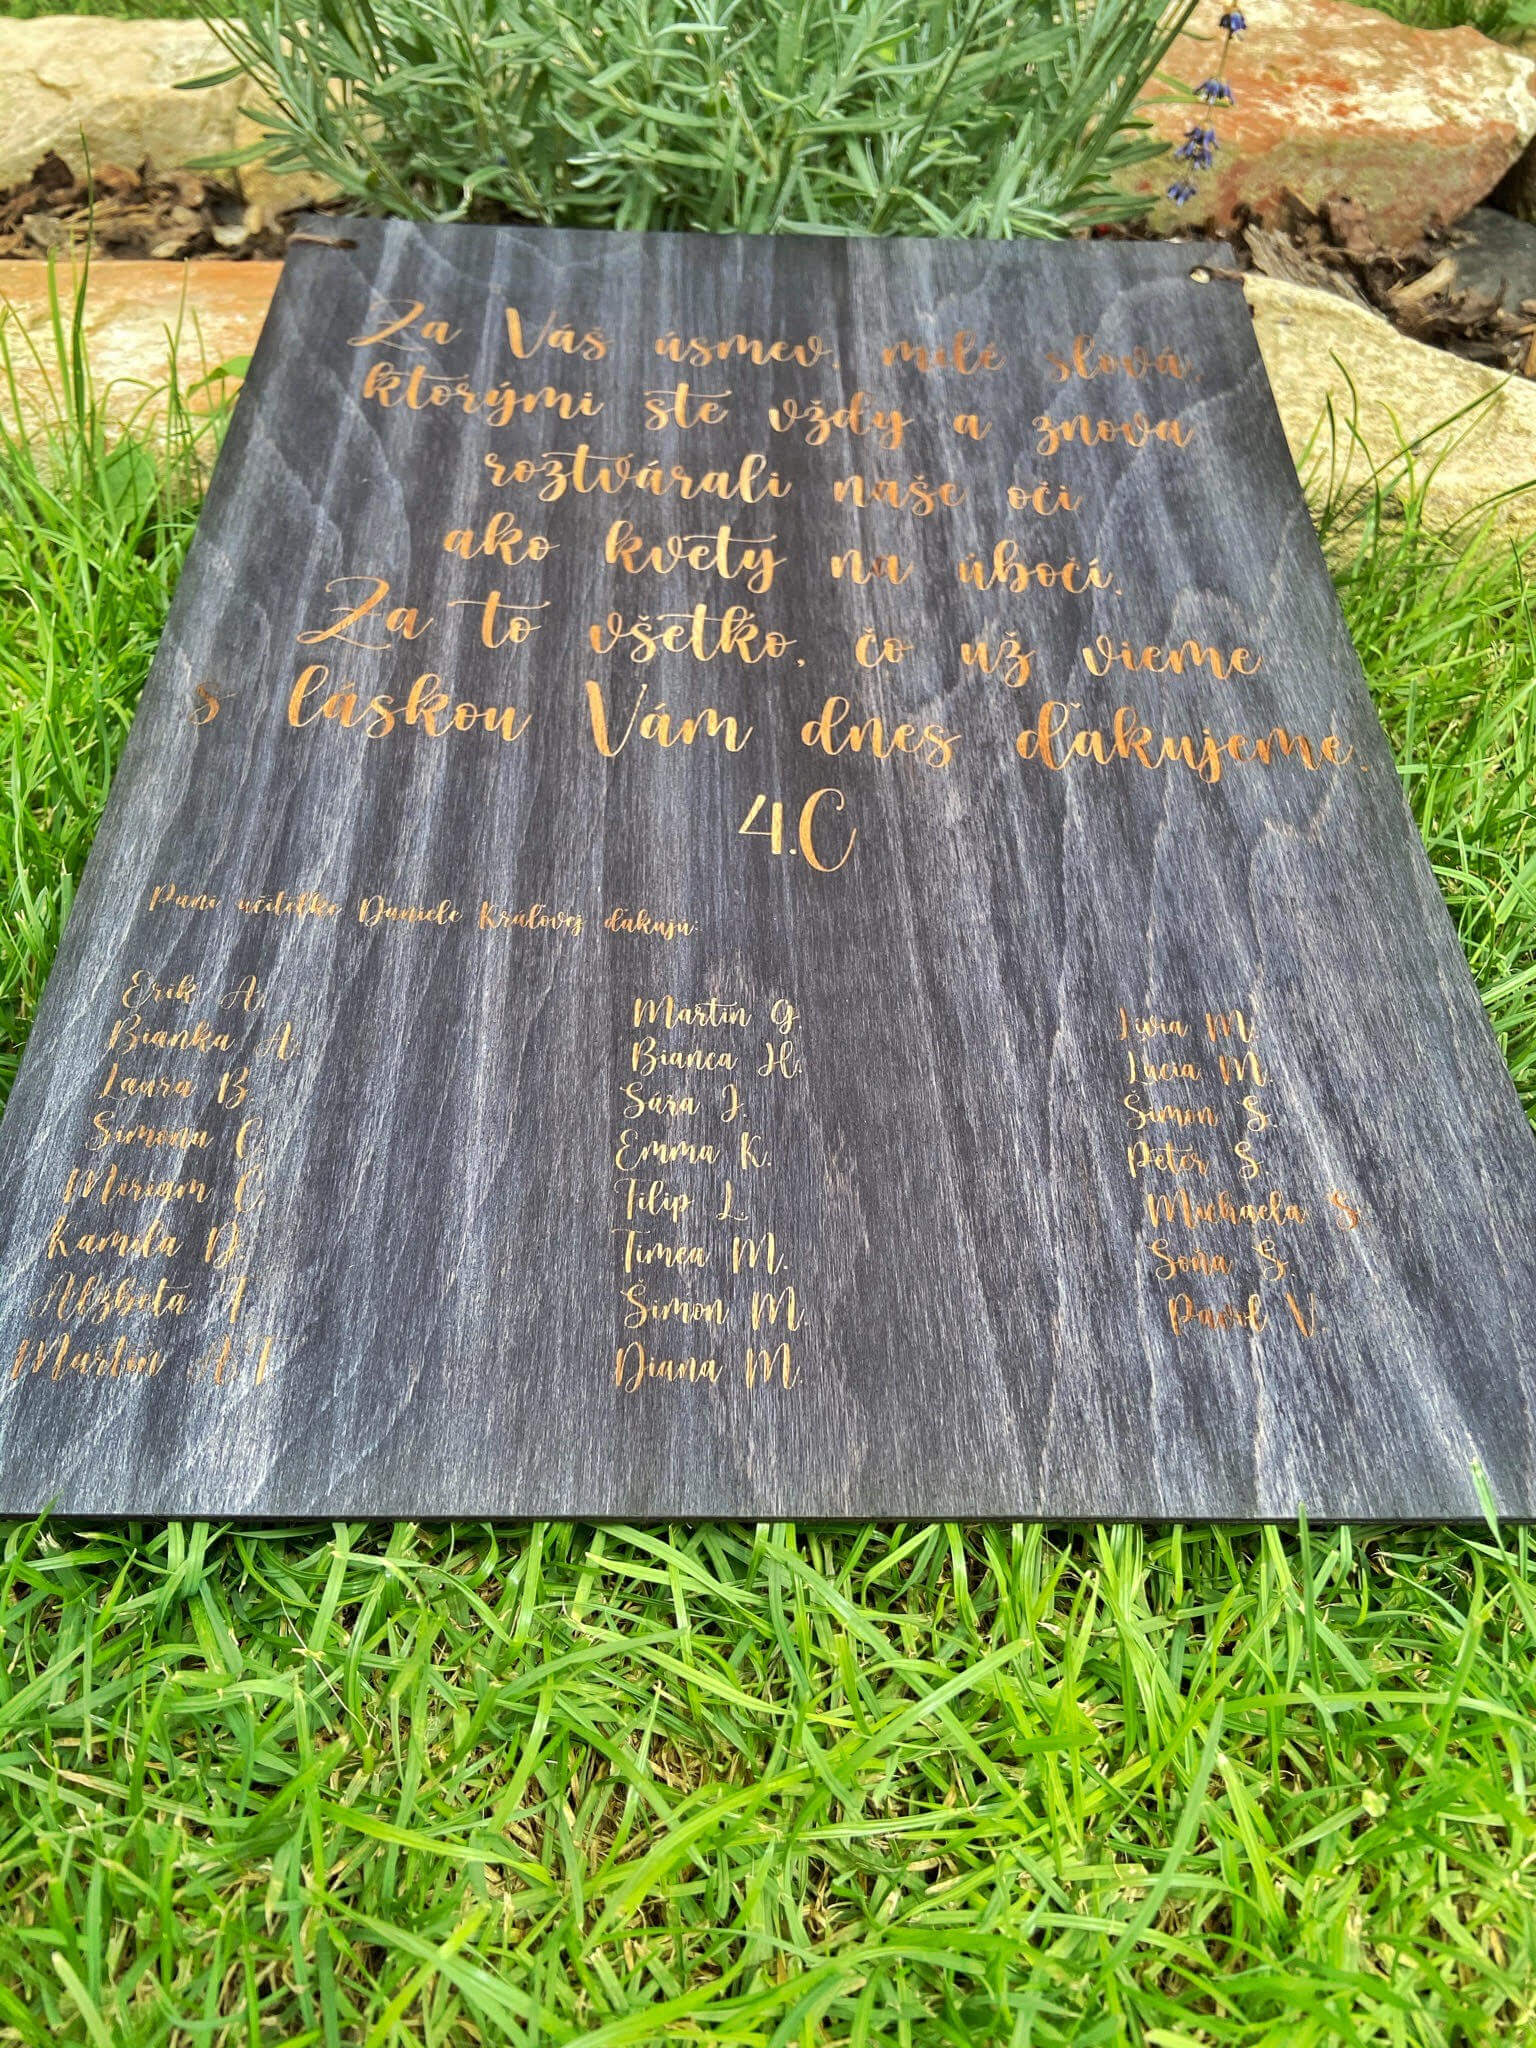 Za Váš úsmev, milé slová,
ktorými ste vždy a znova
roztvárali naše oči
ako kvety na úbočí.
Za to všetko, čo už vieme
s láskou Vám dnes ďakujeme.
4.C
Pani učiteľke Daniele Kráľovej ďakujú:
Erik A.
Bianka A.
Laura B.
Simona C.
Miriam Č.
Kamila D.
Alžbeta F.
Martin H.T.
Martin G.
Bianca H.
Sára J.
Emma K.
Filip L.
Timea M.
Šimon M.
Diana M.
Lívia M.
Lucia M.
Šimon S.
Peter S.
Michaela S.
Soňa Š.
Pavol V.